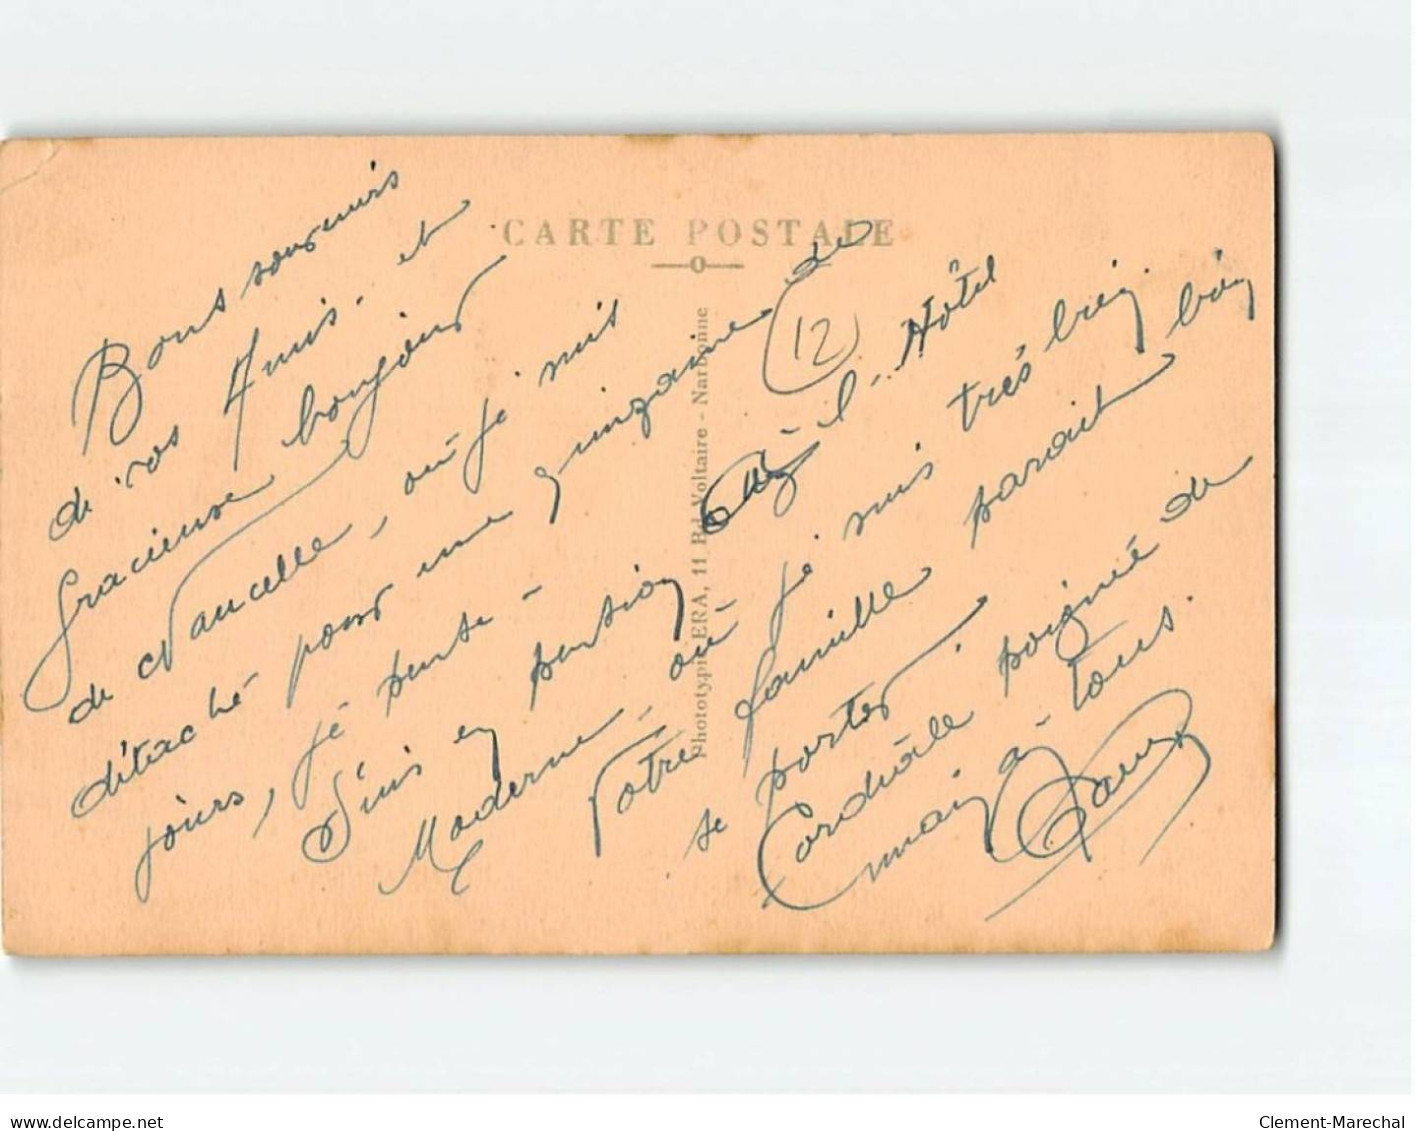 CARTE POSTALE
Bons souvenirs
de vos Amis. et
gracieuse bonjour
de Naucelle, où je suis
détaché pour une quinzaine de
jours, je pense -
Suis en pension à l'Hôtel
Moderne - où je suis très bien
Votre famille parait bien
se porter.
Cordiale poignée de
main à tous.
12
Phototypie ERA, 11 Bd Voltaire - Narbonne
delcampe.net
Clement-Marechal